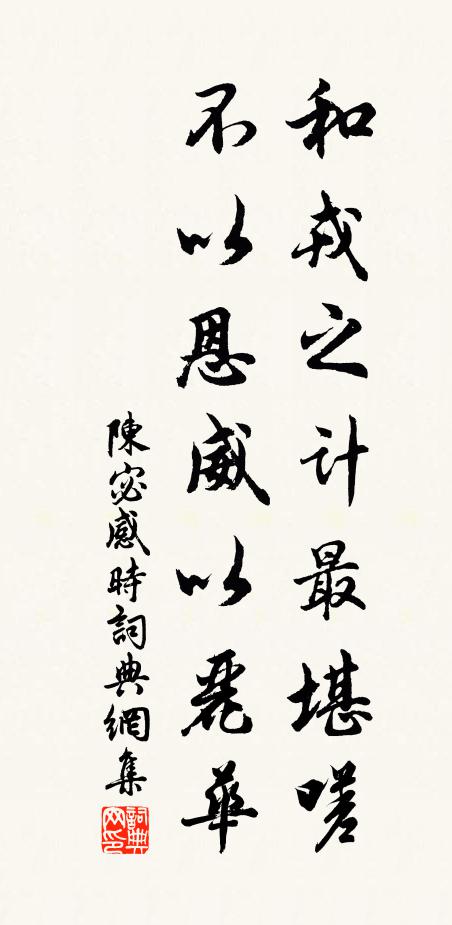 和戎之计最堪嗟
不以恩威以麗華
陳宓感時詞典網集
詞典网印